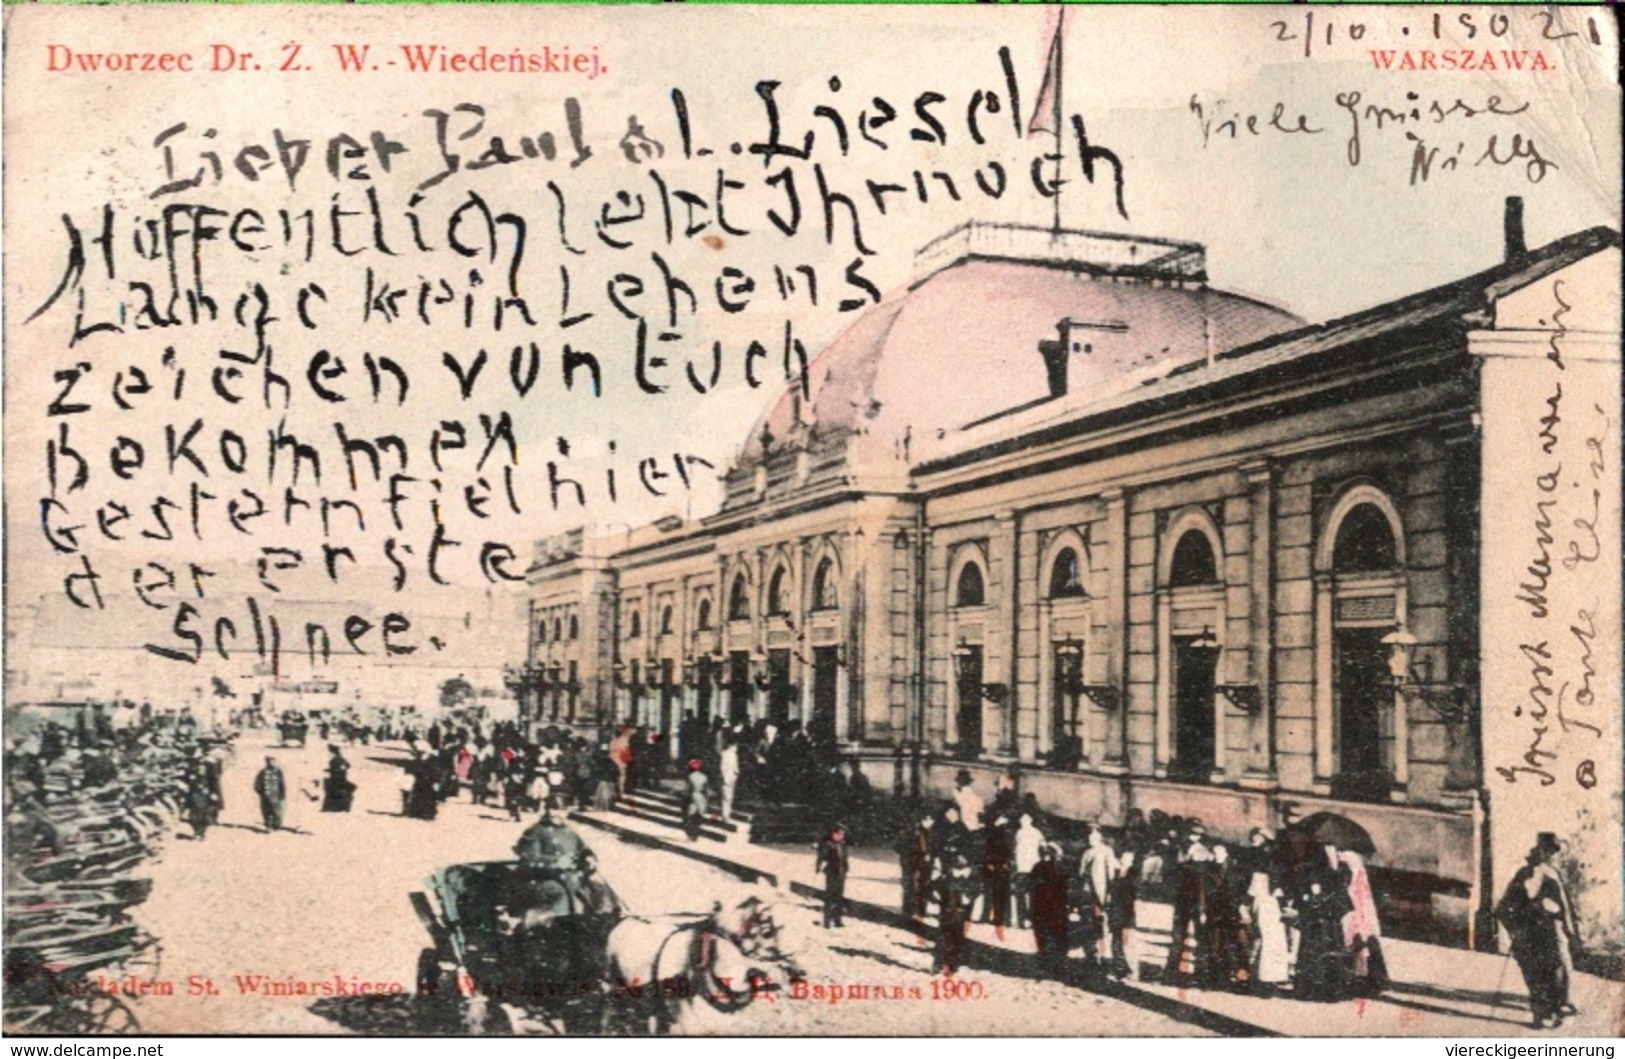 2/10.1902
Dworzec Dr. Ż. W.-Wiedeńskiej.
WARSZAWA.
Viele Grüsse
Willy
Lieber Paul & L. Liesel
Hoffentlich lebt Ihr noch
Lange kein Lebens
zeichen von Euch
bekommen.
Gestern fiel hier
der erste
Schnee.
Grüsst Mama von mir
Tante Elise.
Nakładem St. Winiarskiego w Warszawie. Д. Ц. Варшава 1900.
www.delcampe.net
viereckigeerinnerung